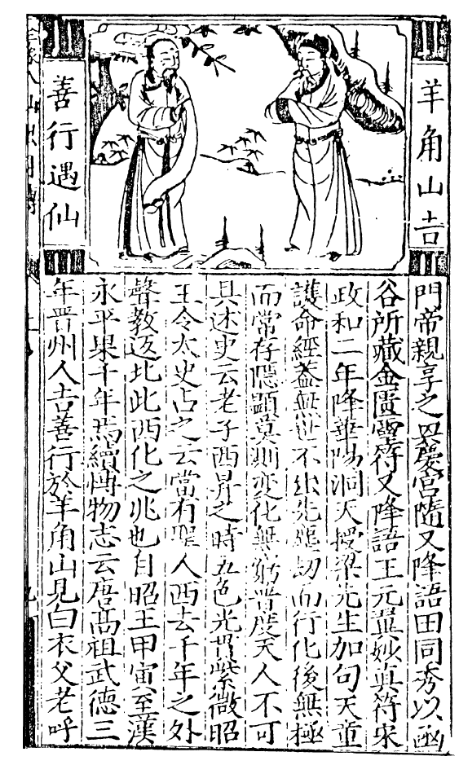 羊角山吉
善行遇仙
門帝親享之㒷慶宮隨又降語田同秀以函
谷所藏金匱靈符又降語王元翼妙真符宋
政和二年降華陽洞天授梁先生加句天童
護命經蓋無世不出先塵劫而行化後無極
而常存隱顯莫測変化無窮普度天人不可
具述史云老子西昇之時五色光貫紫微昭
王令太史占之云當有聖人西去千年之外
聲教返北此西化之兆也自昭王甲寅至漢
永平果千年焉續博物志云唐髙祖武德三
年晉州人吉善行於羊角山見白衣父老呼